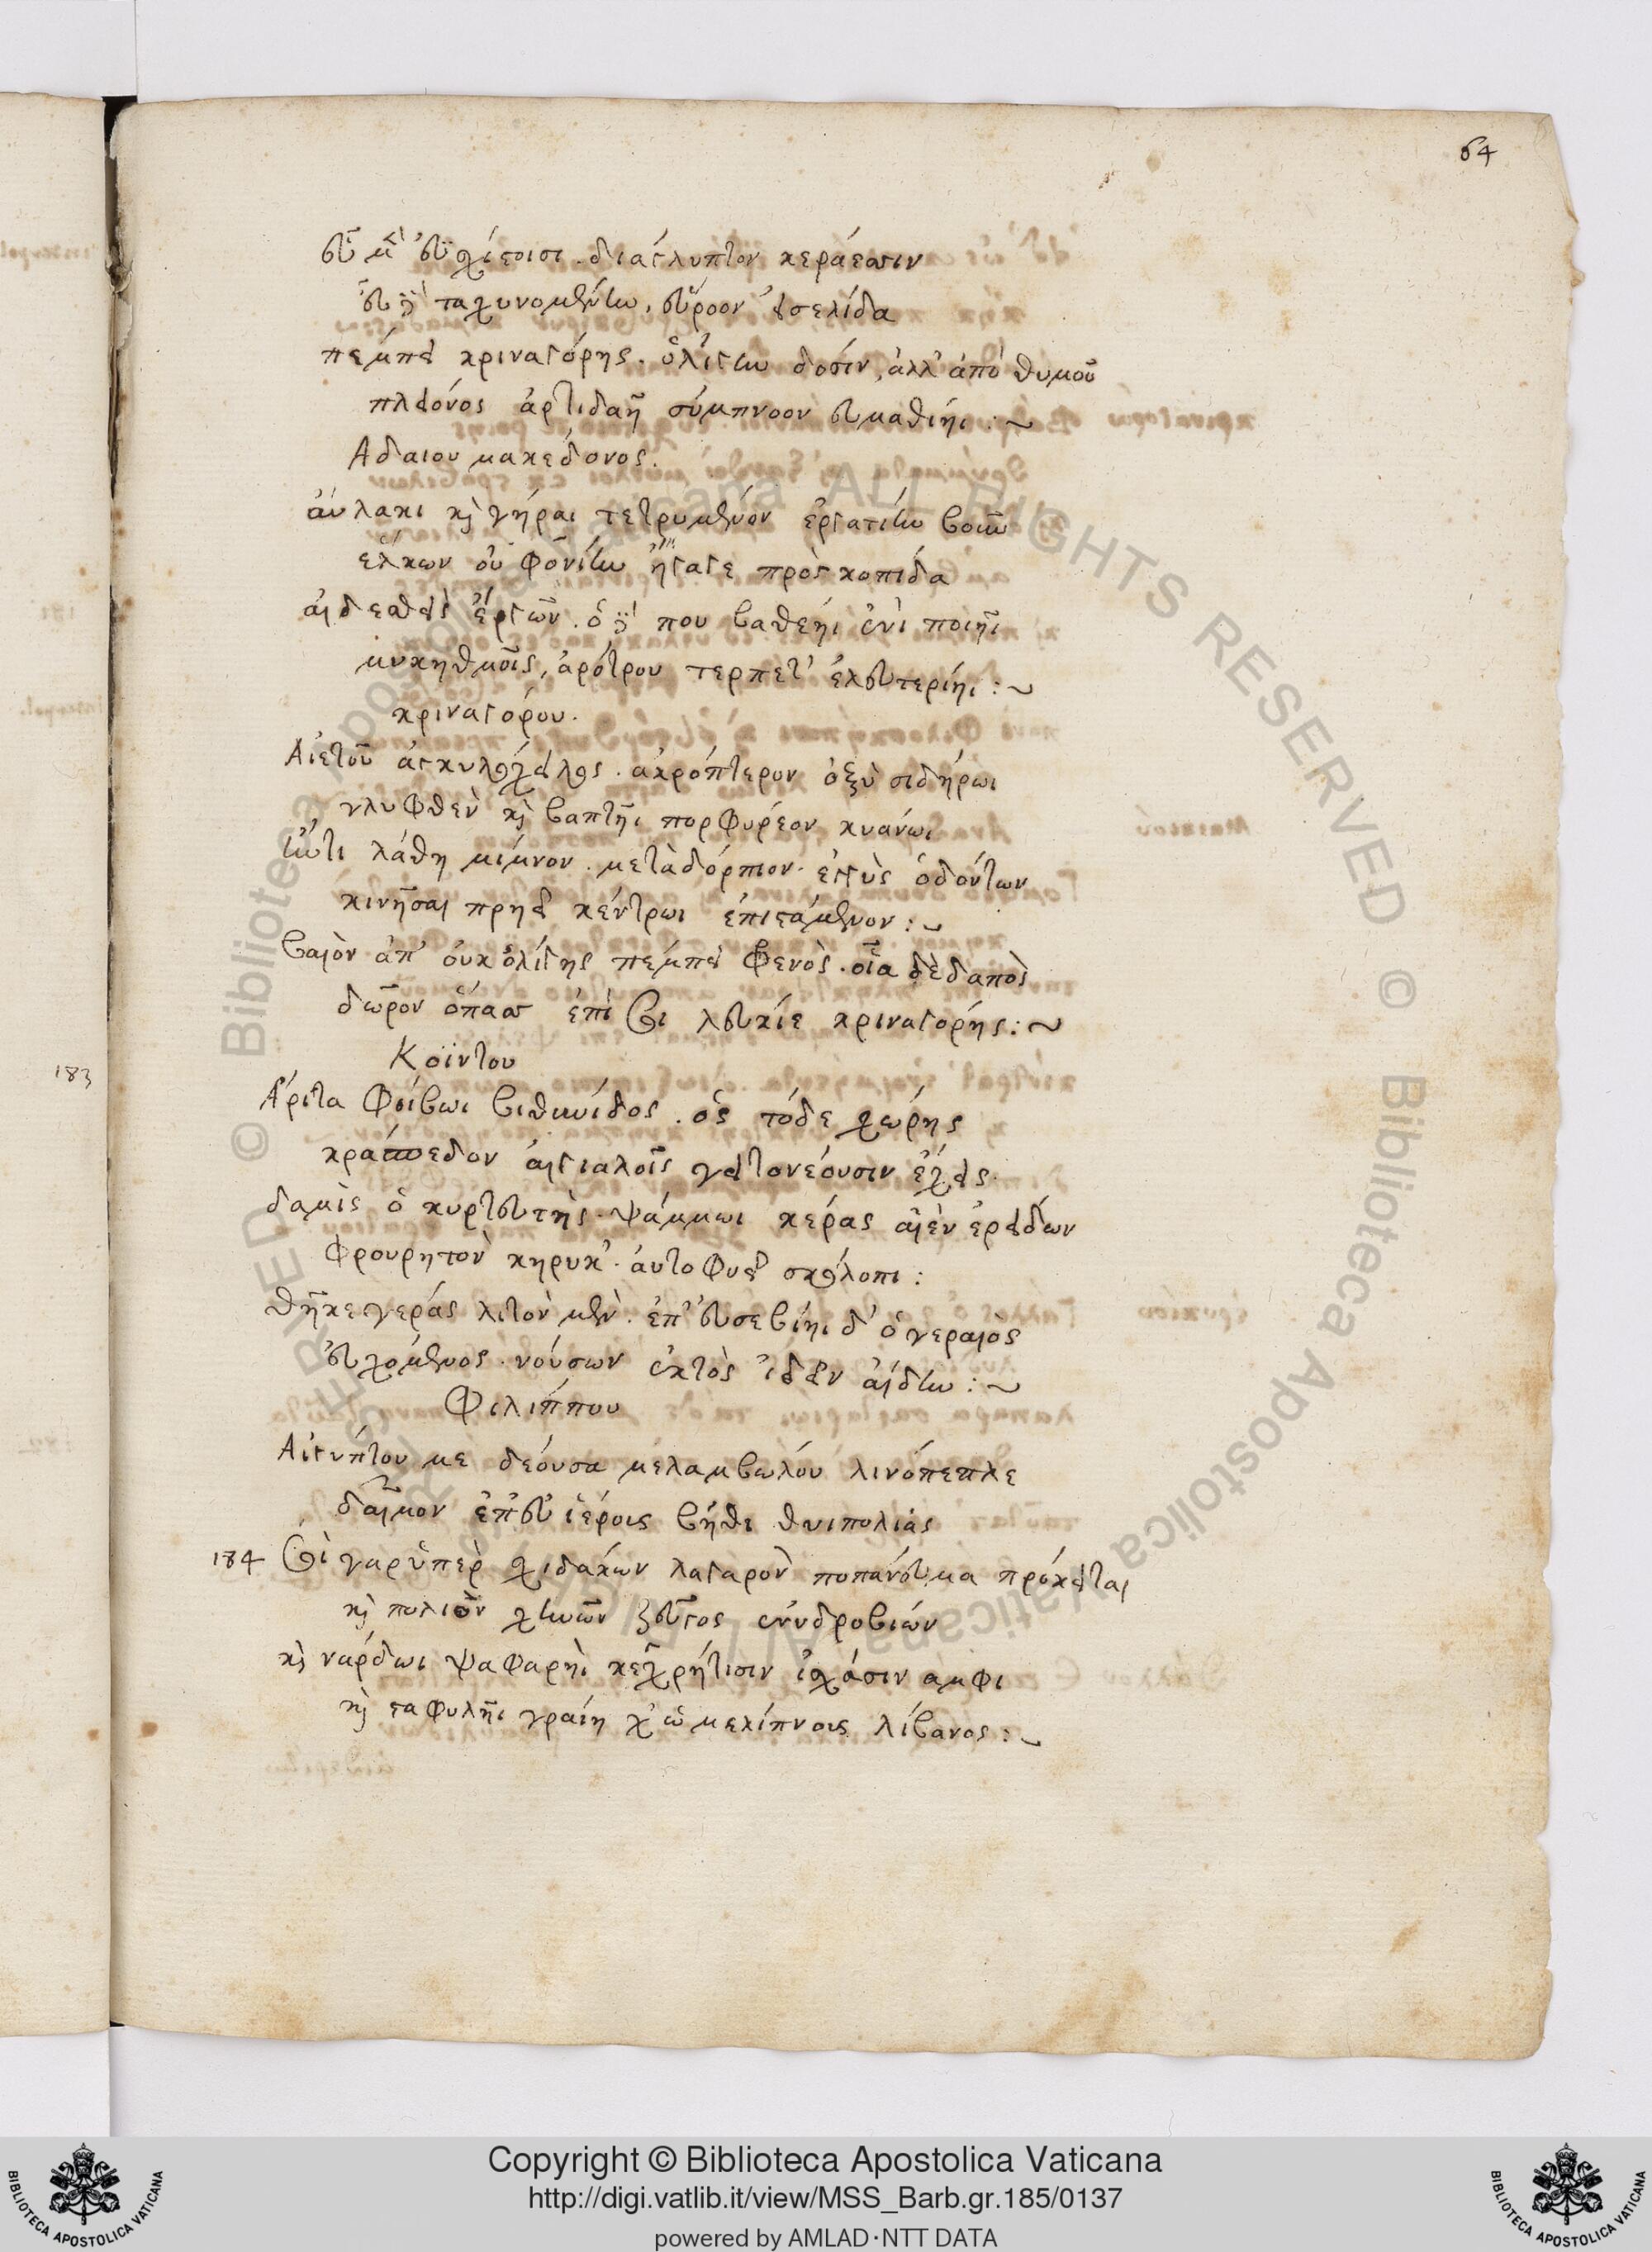 64
εὖ μὲν ἐϋσχίστοισι. διάγλυπτον κεράεσσιν
εὖ δὲ ταχυνομένην, εὔροον εἰς σελίδα
πέμπει κριναγόρης. ὀλίγην δόσιν, ἀλλ' ἀπὸ θυμοῦ
πλείονος ἀρτιδαῆ σύμπνοον εὐμαθίηι :~
Αδαιου μακεδόνος.
αὔλακι καὶ γήραι τετρυμένον ἐργατίνην βοῦν
ἕλκων οὐ φονίην ἤγαγε πρὸς κοπίδα
αἰδεσθεὶς ἔργων. ὁ δέ που βαθέηι ἐνὶ ποίηι
μυκηθμοῖς, ἀρότρου τέρπετ' ἐλευτερίηι :~
κριναγόρου.
Αἰετοῦ ἀγκυλοχείλος. ἀκρόπτερον ὀξὺ σιδήρωι
γλυφθὲν καὶ βαπτῆι πορφύρεον κυάνωι
ἤν τι λάθη μίμνον. μεταδόρπιον. ἐγγὺς ὀδόντων
κινῆσαι πρηεῖ κέντρωι ἐπιστάμενον :~
βαιὸν ἀπ' οὐκ ὀλίγης πέμπει φρενὸς. οἷα δὲ δαπὸς
δῶρον ὅπασ ἐπὶ σοὶ λεύκιε κριναγόρης :~
Κοίντου
183
Ἄρίτα Φοίβωι βιθυνίδος. ὃς τόδε χώρης
κράσπεδον αἰγιαλοῖς γειτονέουσιν ἔχεις.
δαμὶς ὁ κυρτευτὴς. ψάμμωι κέρας αἰὲν ἐρείδων
φρουρητὸν κηρυκ'. αὐτοφυεῖ σκόλοπι :
θῆκε γέρας λιτὸν μὲν. ἐπ' εὐσεβίηι δ' ὁ γεραιὸς
εὐχόμενος. νούσων ἐκτὸς ἰδεῖν ἀίδην :~
Φιλίππου
Αἰγύπτου με δέουσα μελαμβώλου λινόπεπλε
δαῖμον ἐπ' εὐιέροις βῆθι θυιπολίας
184 σοὶ γαρ ὑπὲρ σχιδάκων λαγαρὸν ποπάνευμα πρόκειται
καὶ πολιὸν χηνῶν ζεῦγος ἐνυδροβιών
καὶ νάρδωι ψαφαρὴι κεχρήτισιν ἰσχάσιν αμφι
καὶ σταφυλῆι γραίη χ' ὡ μελίπνους λίβανος :~
Copyright © Biblioteca Apostolica Vaticana
http://digi.vatlib.it/view/MSS_Barb.gr.185/0137
powered by AMLAD·NTT DATA